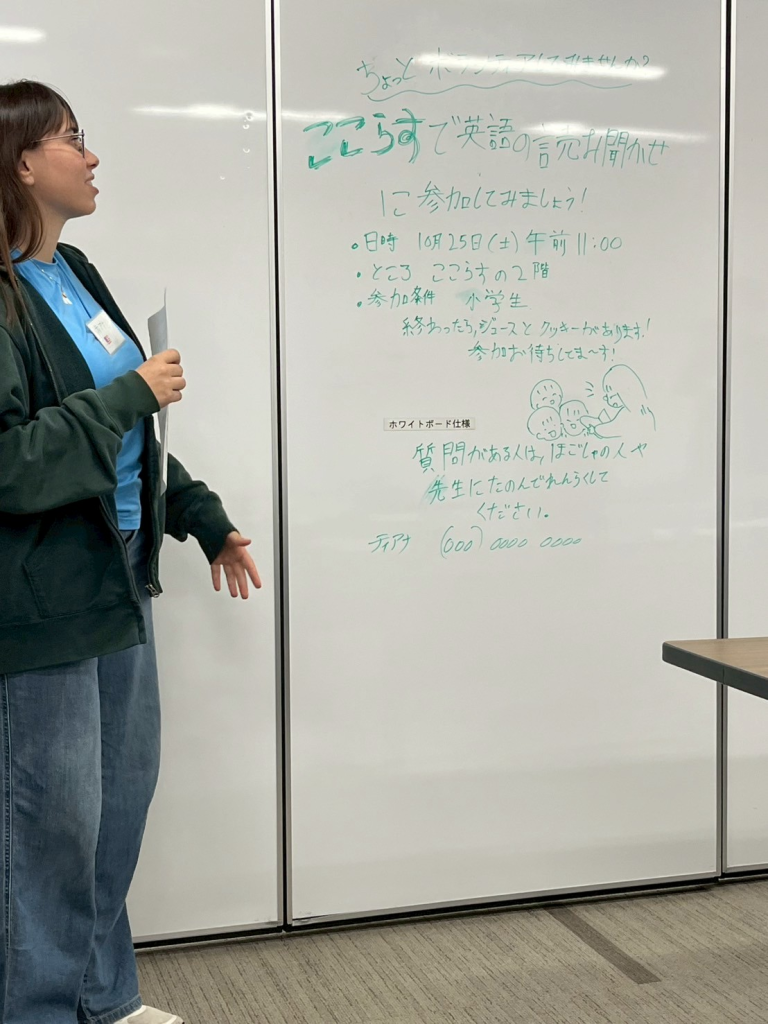 ちょっと ボランティアしてみませんか?
こころらすで英語の読み聞かせ
に参加してみましょう!
・日時 10月25日(土)午前11:00
・ところ こころらすの2階
・参加条件 小学生
終わったら,ジュースと クッキーがあります!
参加お待ちしてま〜す!
ホワイトボード仕様
質問がある人は,ほごしゃの人や
先生にたのんでれんらくして
ください。
ディアナ (000) 0000 0000